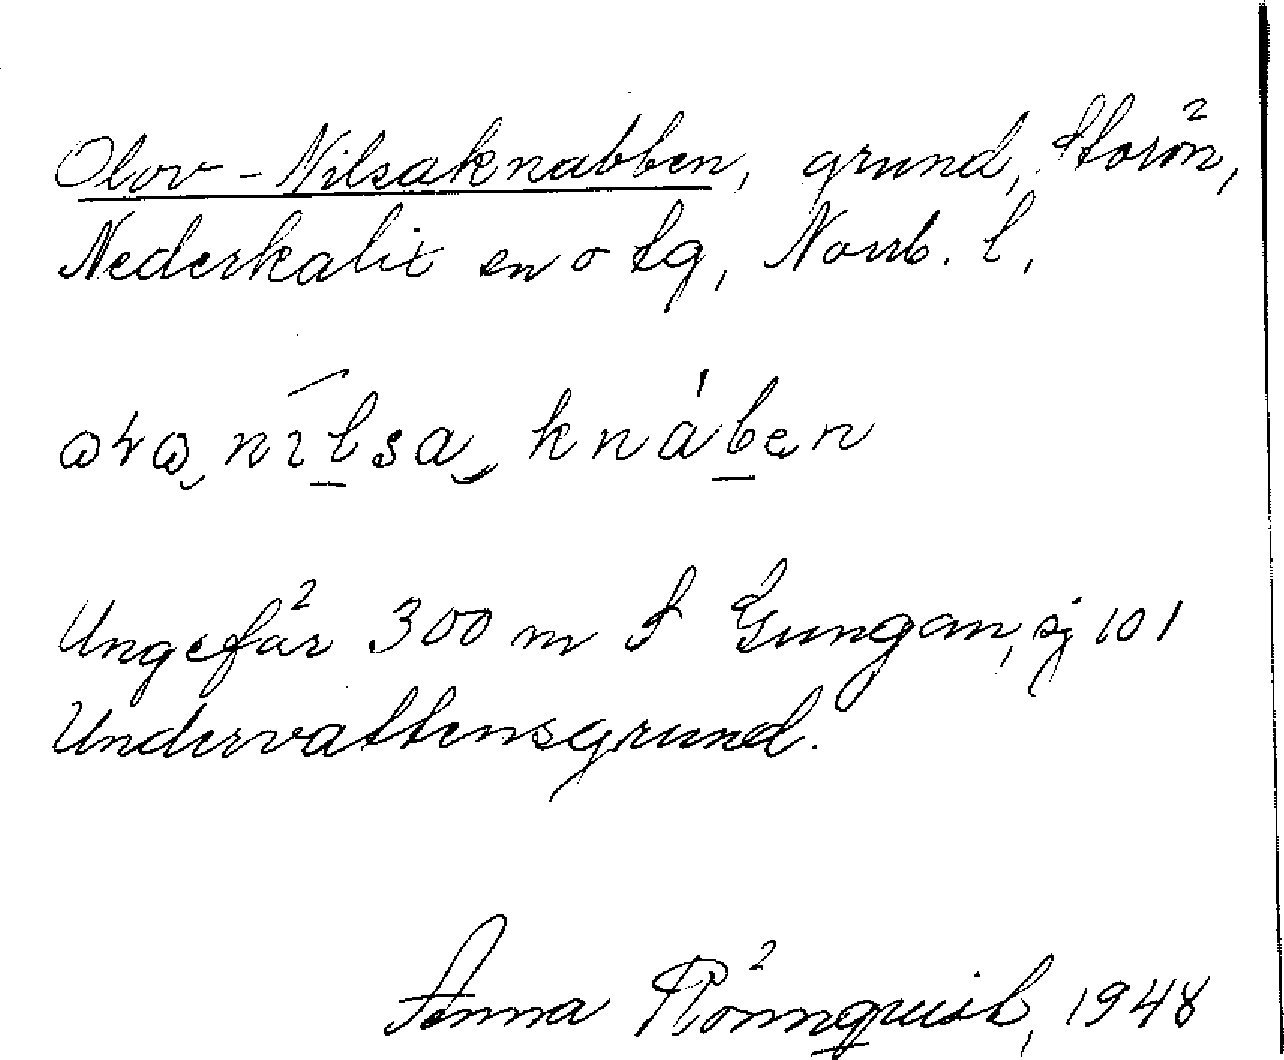 Olov-Nilsaknabben, grund, Storön,
Nederkalix sn o tg, Norrb. l,
knáben
Ungefär 300 m S Gungan, sj 101
Undervattensgrund.
Anna Rönnquist, 1948